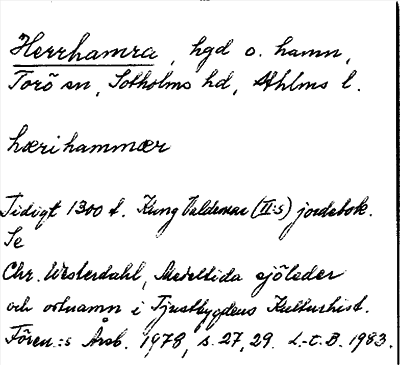 Herrhamra, hgd o. hamn,
Torö sn, Sotholms hd, Sthlms l.
hærihammær
Tidigt 1300 t. Kung Valdemar (II:s) jordebok.
Se
Chr. Westerdahl, Medeltida sjöleder
och ortnamn i Tjustbygdens Kulturhist.
Fören.:s Årsb. 1978, s. 27, 29. L-E.B. 1983.